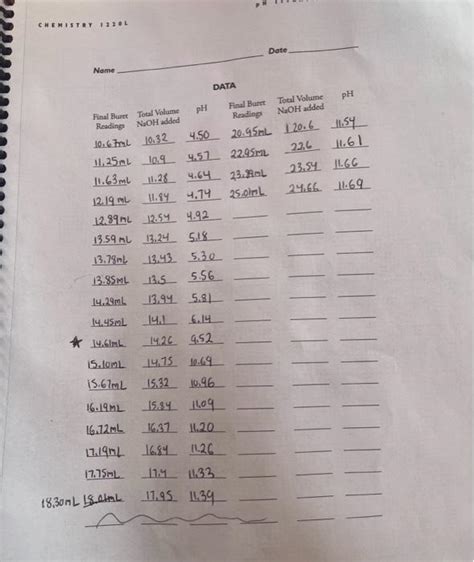 CHEMISTRY 1220L
Date
Name
DATA
Final Buret Readings Total Volume NaOH added pH Final Buret Readings Total Volume NaOH added pH
10.67mL 10.32 4.50 20.95mL 20.6 11.54
11.25mL 10.9 4.57 22.95mL 22.6 11.61
11.63mL 11.28 4.64 23.89mL 23.54 11.66
12.19mL 11.84 4.74 25.01mL 24.66 11.69
12.89mL 12.54 4.92
13.59mL 13.24 5.18
13.78mL 13.43 5.30
13.85mL 13.5 5.56
14.29mL 13.94 5.81
14.45mL 14.1 6.14
14.61mL 14.26 9.52
15.10mL 14.75 10.69
15.67mL 15.32 10.96
16.19mL 15.84 11.09
16.72mL 16.37 11.20
17.19mL 16.84 11.26
17.75mL 17.4 11.33
18.30mL 17.95 11.39